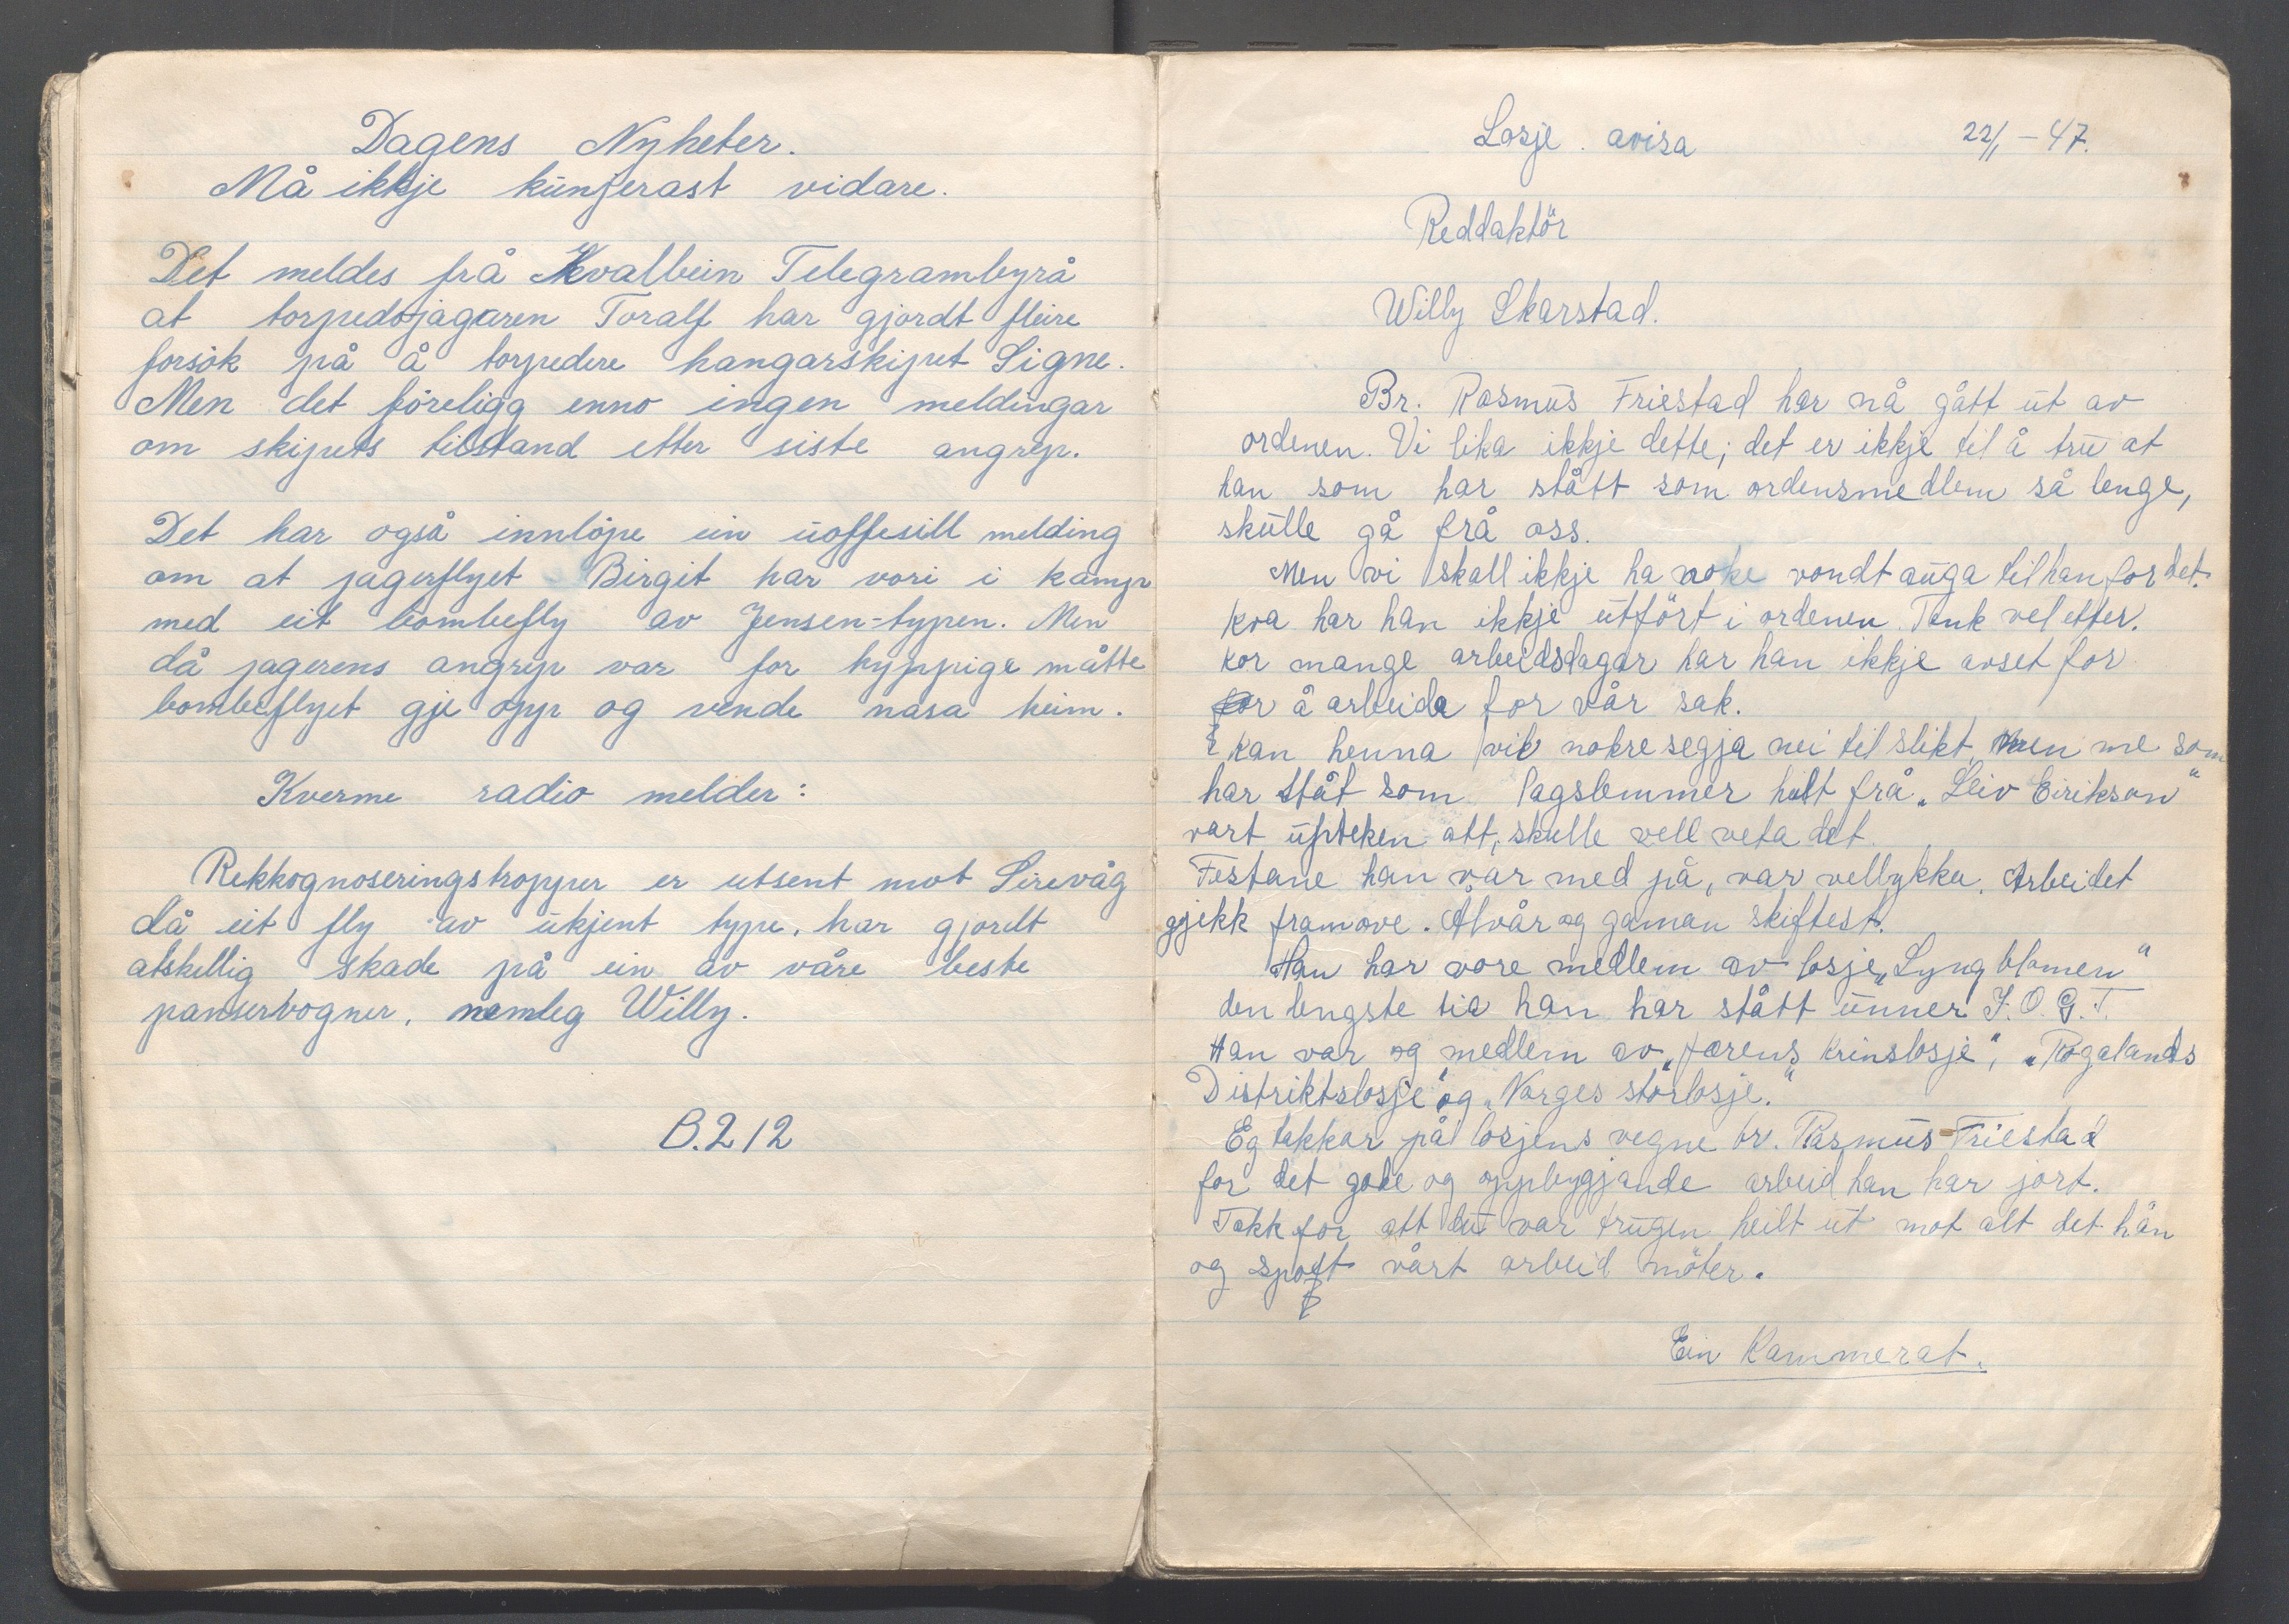 Dagens Nyheter.
Må ikkje kunferast vidare.
Det meldes frå Kvalbein Telegrambyrå
at torpedojagaren Toralf har gjordt fleire
forsök på å torpedere hangarskipet Signe.
Men det föreligg enno ingen meldingar
om skipets tilstand etter siste angrep.
Det har også innlöpe ein uoffesiell melding
om at jagerflyet Birgit har vori i kamp
med eit bombefly av Jensen-typen. Men
då jagerens angrep var for hyppige måtte
bombeflyet gje opp og vende nasa heim.
Kverme radio melder:
Rekkognoseringstropper er utsent mot Sirevåg
då eit fly av ukjent type, har gjordt
atskillig skade på ein av våre beste
panservogner, nemleg Willy.
B.212
Losje. avisa 22/1 - 47.
Reddaktör
Willy Skarstad.
Br. Rasmus Friestad har nå gått ut av
ordenen. Vi lika ikkje dette; det er ikkje til å tru at
han som har stått som ordensmedlem så lenge,
skulle gå frå oss.
Men vi skall ikkje ha noke vondt auga til han for det.
Kva har han ikkje utfört i ordenen. Tenk vel etter.
Kor mange arbeidsdagar har han ikkje avset for
for å arbeida for vår sak.
Kan henna vil nokre segja nei til slikt, men me som
har ståt som lagslemmer heilt frå „Leiv Eirikson"
vart upteken att, skulle vell veta det.
Festane han var med på, var vellykka. Arbeidet
gjekk framove. Alvår og gaman skiftest.
Han har vore medlem av losje „Lyngblomen"
den lengste tia han har stått unner I.O.G.T.
Han var og medlem av „Jærens Krinslosje", „Rogalands
Distriktslosje" og „Norges storlosje."
Eg takkar på losjens vegne br. Rasmus Friestad
for det gode og oppbyggjande arbeid han har jort.
Takk for att du var trugen heilt ut mot alt det hån
og spott vårt arbeid möter.
Ein Kammerat.